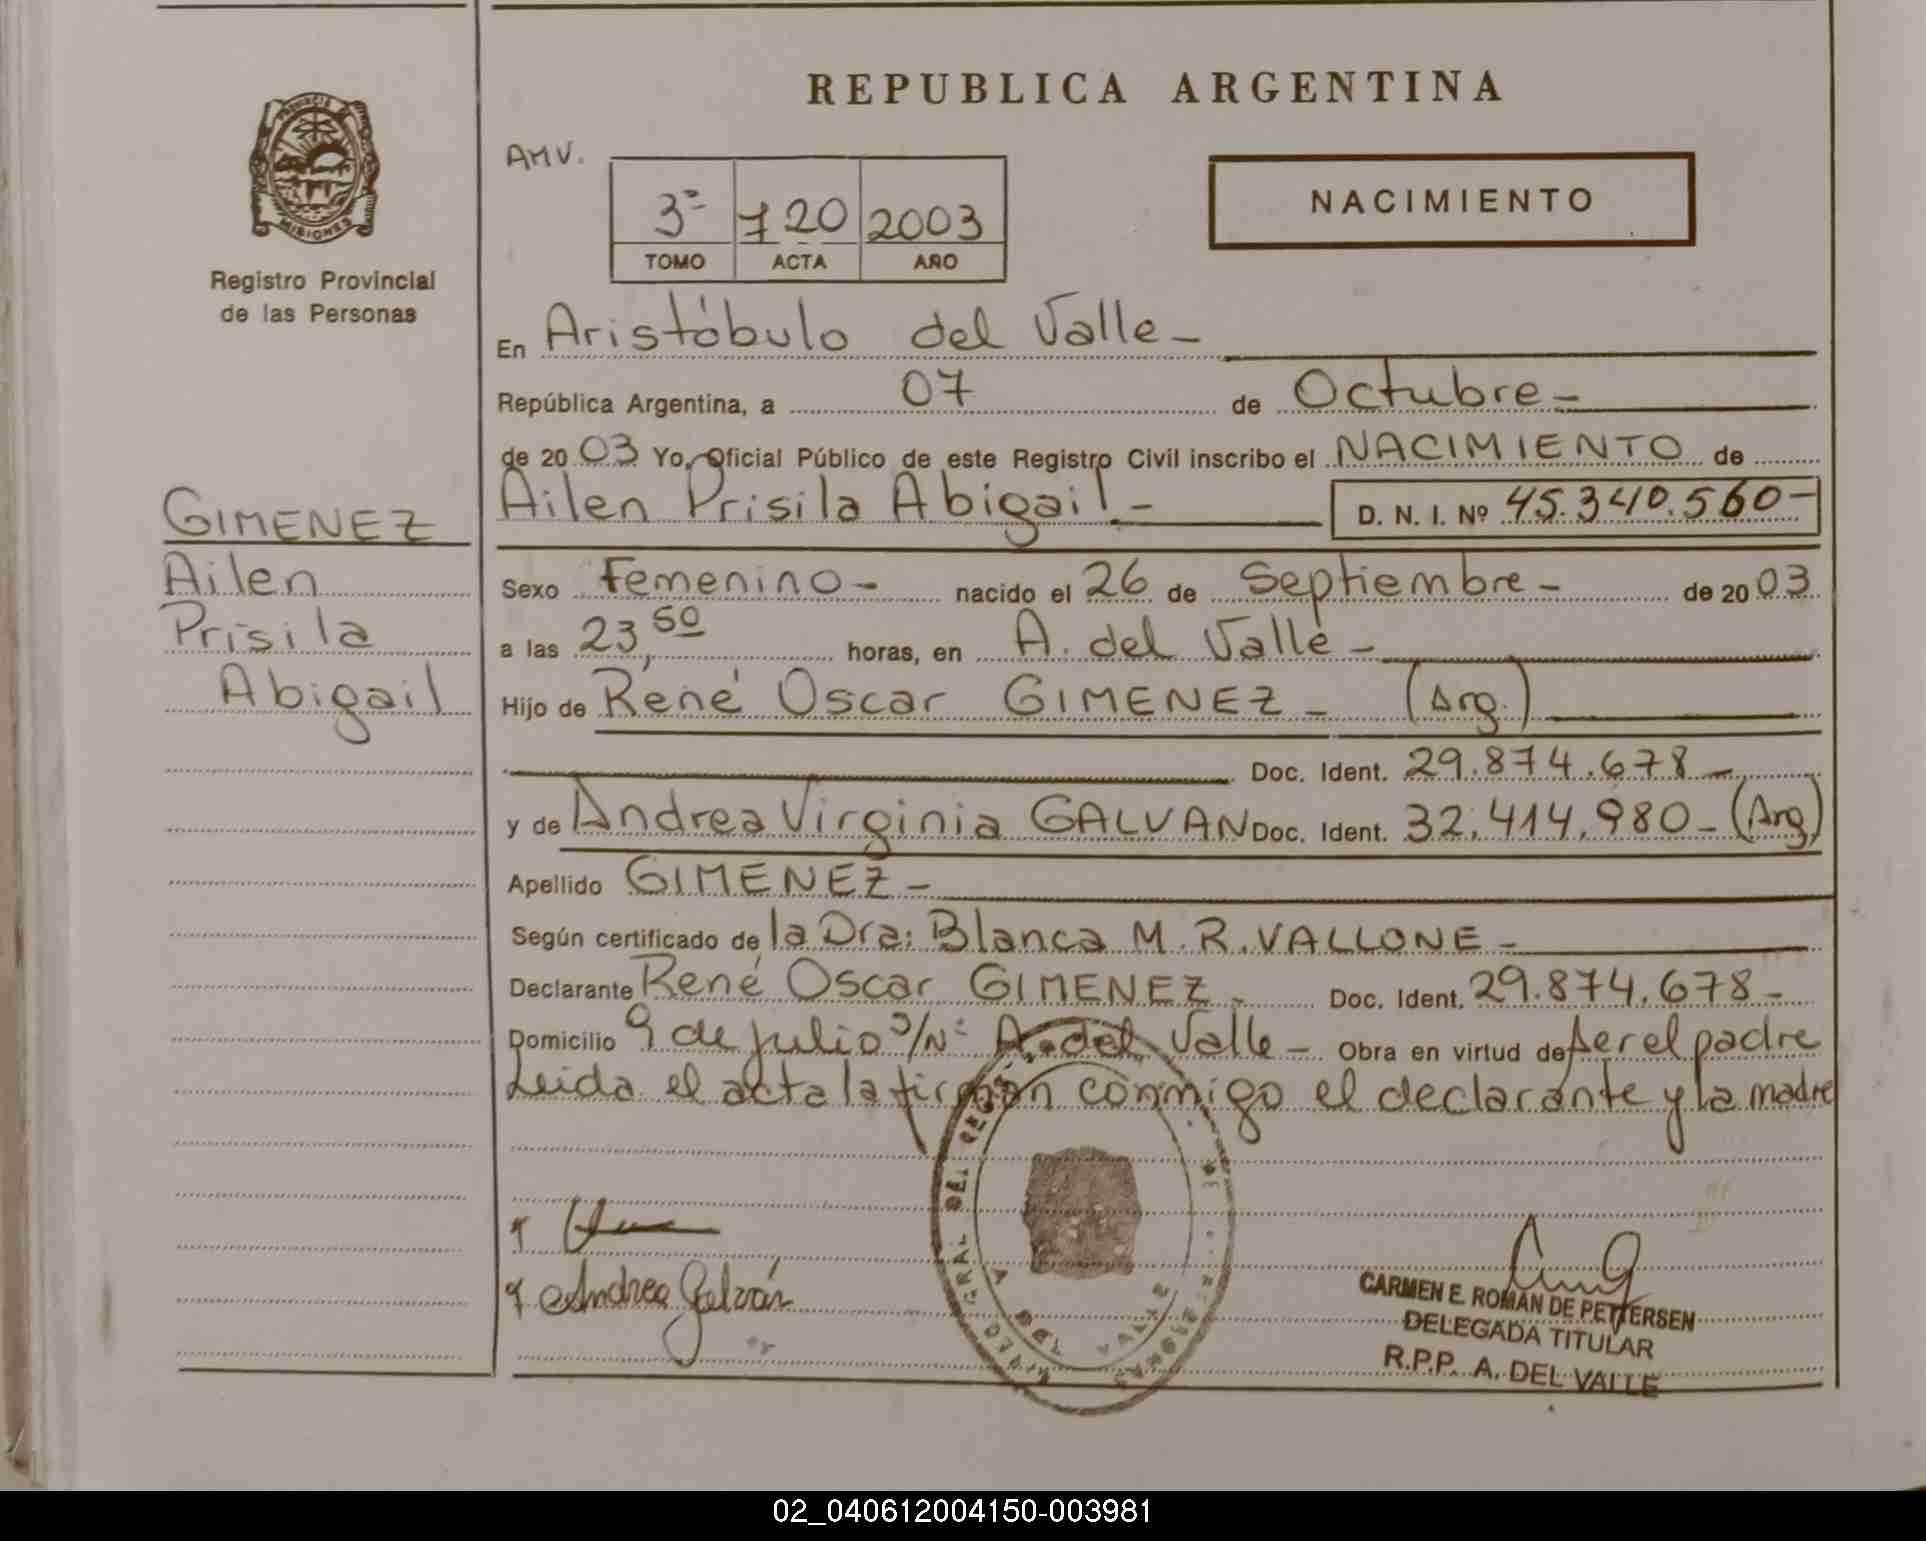 REPUBLICA ARGENTINA
PROVINCIA
MISIONES
Registro Provincial
de las Personas
AMV.
3º 720 2003
TOMO ACTA AÑO
NACIMIENTO
En Aristóbulo del Valle -
República Argentina, a 07 de Octubre -
de 2003 Yo, Oficial Público de este Registro Civil inscribo el NACIMIENTO de
Ailen Prisila Abigail - D. N. I. Nº 45.340.560-
GIMENEZ
Ailen
Prisila
Abigail
Sexo Femenino - nacido el 26 de Septiembre - de 2003
a las 23,50 horas, en A. del Valle -
Hijo de René Oscar GIMENEZ - (Arg.)
Doc. Ident. 29.874.678 -
y de Andrea Virginia GALVAN Doc. Ident. 32.414.980 - (Arg)
Apellido GIMENEZ -
Según certificado de la Dra: Blanca M. R. VALLONE -
Declarante René Oscar GIMENEZ - Doc. Ident. 29.874.678 -
Domicilio 9 de julio S/Nº A. del Valle - Obra en virtud de ser el padre
Leida el acta la firman conmigo el declarante y la madre
Andrea Galván
CARMEN E. ROMAN DE PETTERSEN
DELEGADA TITULAR
R.P.P. A. DEL VALLE
02_040612004150-003981